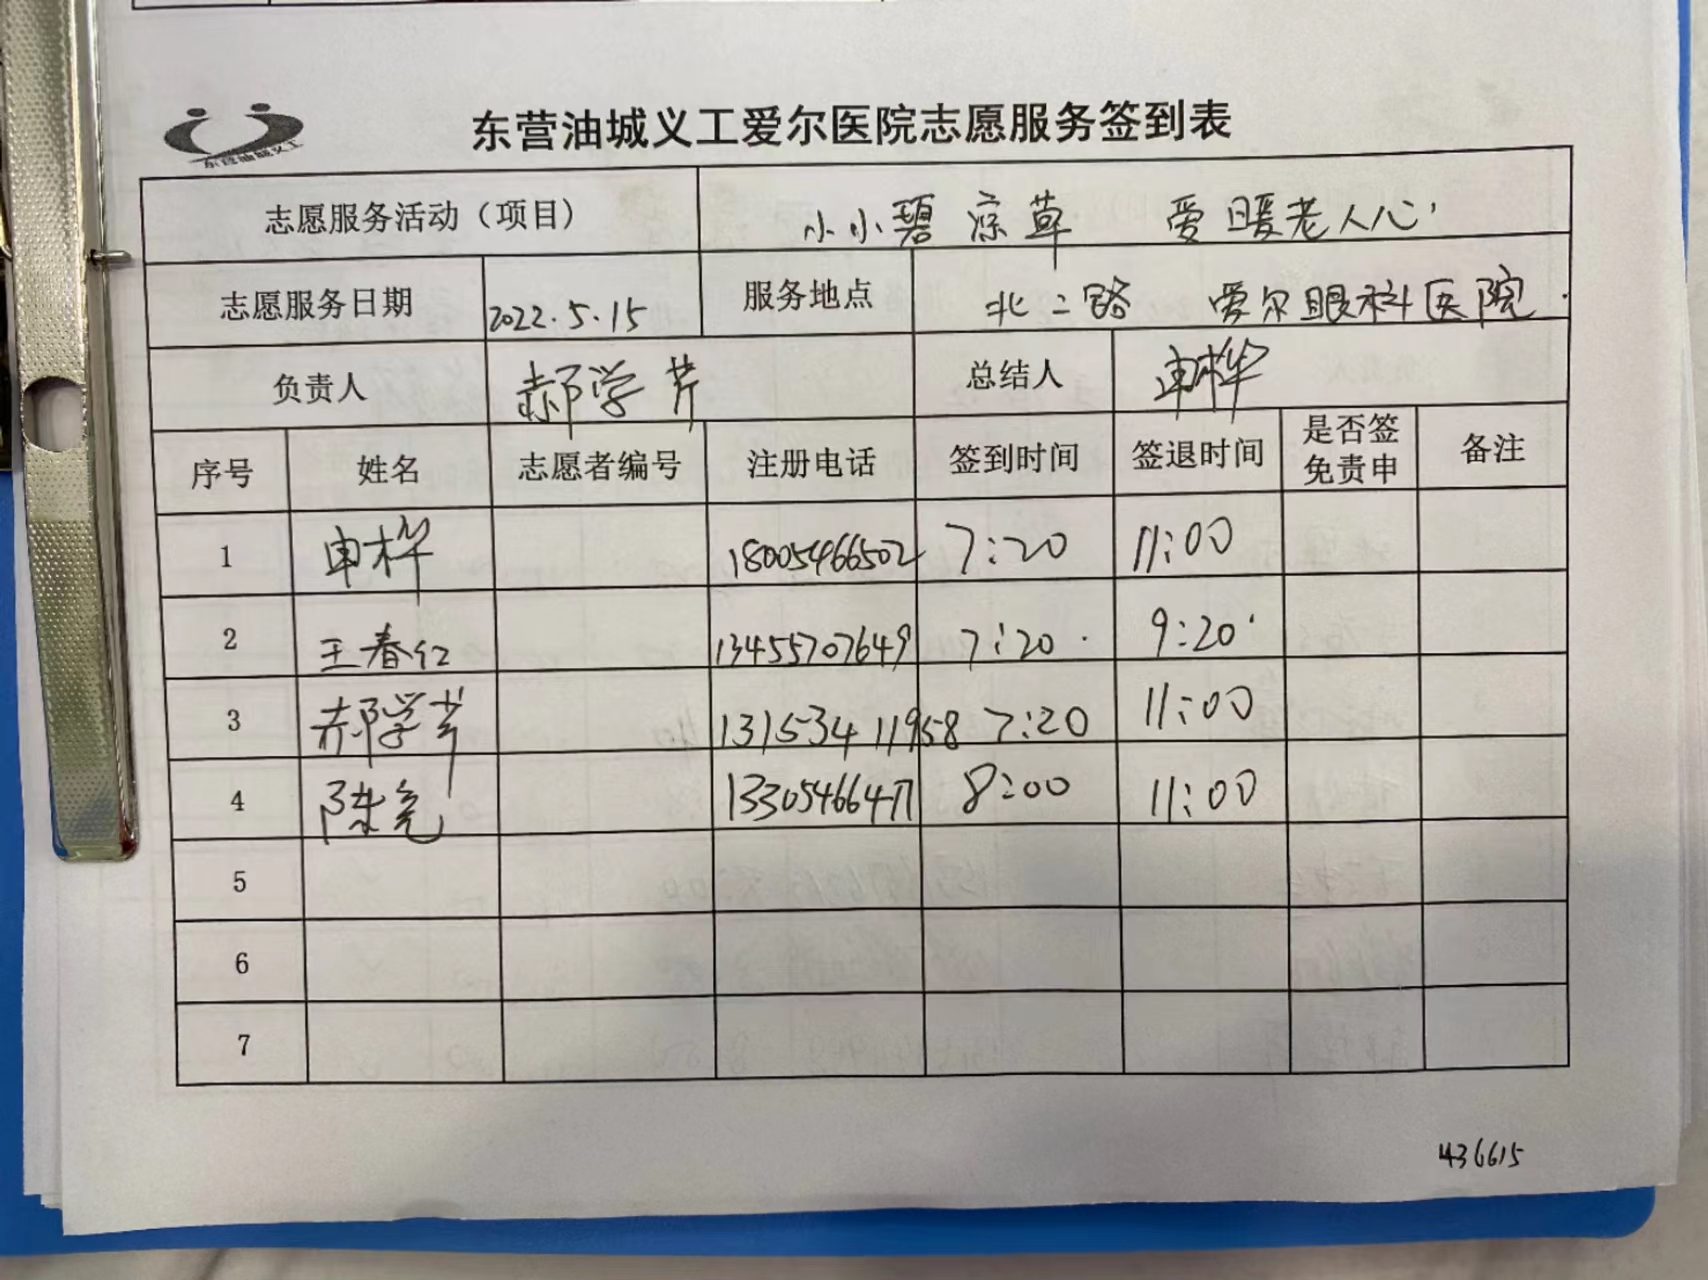 东营油城义工
东营油城义工爱尔医院志愿服务签到表
志愿服务活动（项目） 小小碧凉草 爱暖老人心
志愿服务日期 2022.5.15 服务地点 北二路 爱尔眼科医院.
负责人 郝学芹 总结人 申桦
序号 姓名 志愿者编号 注册电话 签到时间 签退时间 是否签免责申 备注
1 申桦 18005466502 7:20 11:00
2 王春红 13455707649 7:20 9:20
3 郝学芹 13153411958 7:20 11:00
4 陈亮 8:00 11:00
5
6
7
436615